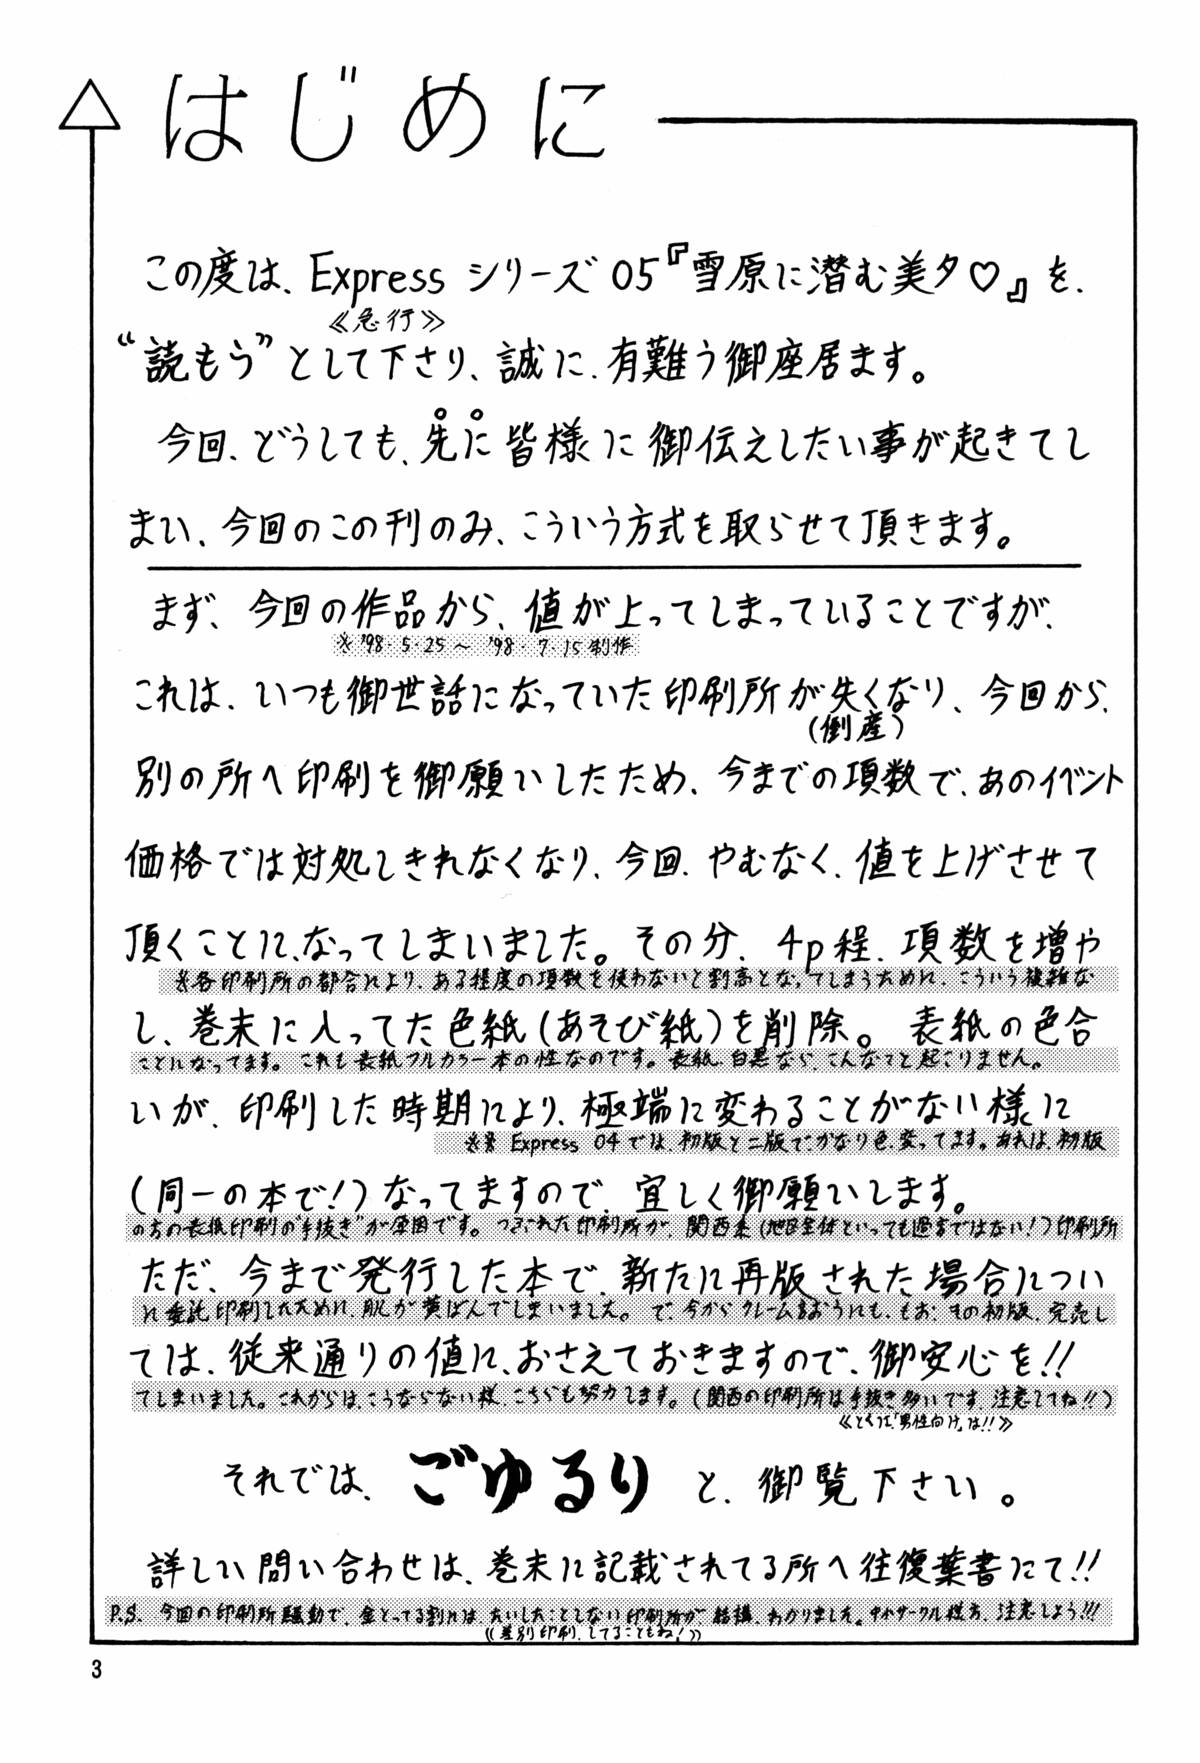 はじめに
この度は、Expressシリーズ05『雪原に潜む美夕♡』を、
≪急行≫
“読もう”として下さり、誠に、有難う御座居ます。
今回、どうしても、先に皆様に御伝えしたい事が起きてし
まい、今回のこの刊のみ、こういう方式を取らせて頂きます。
まず、今回の作品から、値が上ってしまっていることですが、
※'98・5・25〜'98・7・15制作
これは、いつも御世話になっていた印刷所が失くなり、今回から、
(倒産)
別の所へ印刷を御願いしたため、今までの項数で、あのイベント
価格では対処しきれなくなり、今回、やむなく、値を上げさせて
頂くことに、なってしまいました。その分、4p程、項数を増や
※各印刷所の都合により、ある程度の項数を使わないと割高となってしまうために、こういう複雑な
し、巻末に入ってた色紙(あそび紙)を削除。表紙の色合
ことになってます。これも表紙フルカラー本の性なのです。表紙、白黒なら、こんなこと起こりません。
いが、印刷した時期により、極端に変わることがない様に
※※ Express 04では、初版と二版で、かなり色、変ってます。あれは、初版
(同一の本で!)なってますので、宜しく御願いします。
のちの表紙印刷の“手抜き”が原因です。つぶれた印刷所が、関西系(地区全体といっても過言ではない!)印刷所
ただ、今まで発行した本で、新たに再版された場合につい
に委託印刷したために、肌が黄ばんでしまいました。で、今からクレームをおうにも、もお、その初版、完売し
ては、従来通りの値に、おさえておきますので、御安心を!!
てしまいました。これからは、こうならない様、こちらも努力します。(関西の印刷所は手抜き多いです、注意してね!!)
≪とくに、「男性向け」は!!≫
それでは、ごゆるりと、御覧下さい。
詳しい問い合わせは、巻末に記載されてる所へ往復葉書にて!!
P.S. 今回の印刷所騒動で、金とってる割には、たいしたことしない印刷所が結構、わかりました。中小サークル様方、注意しよう!!!
≪差別印刷、してることもね!≫
3